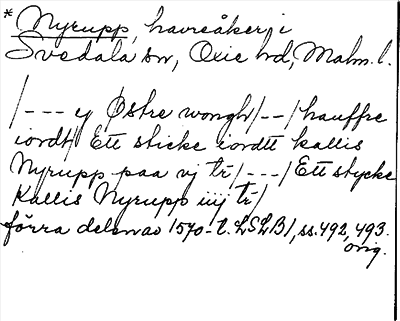 * Nyrupp, havreåker i
Svedala sn, Oxie hd, Malm. l.
/--- y Østre wongh/--/hauffre
iordt/ Ett sticke iordtt kallis
Nyrupp paa vj tr/---/Ett stycke
Kallis Nyrupp iiij tr/
förra delen av 1570-t. LSLB1, ss. 492, 493.
orig.